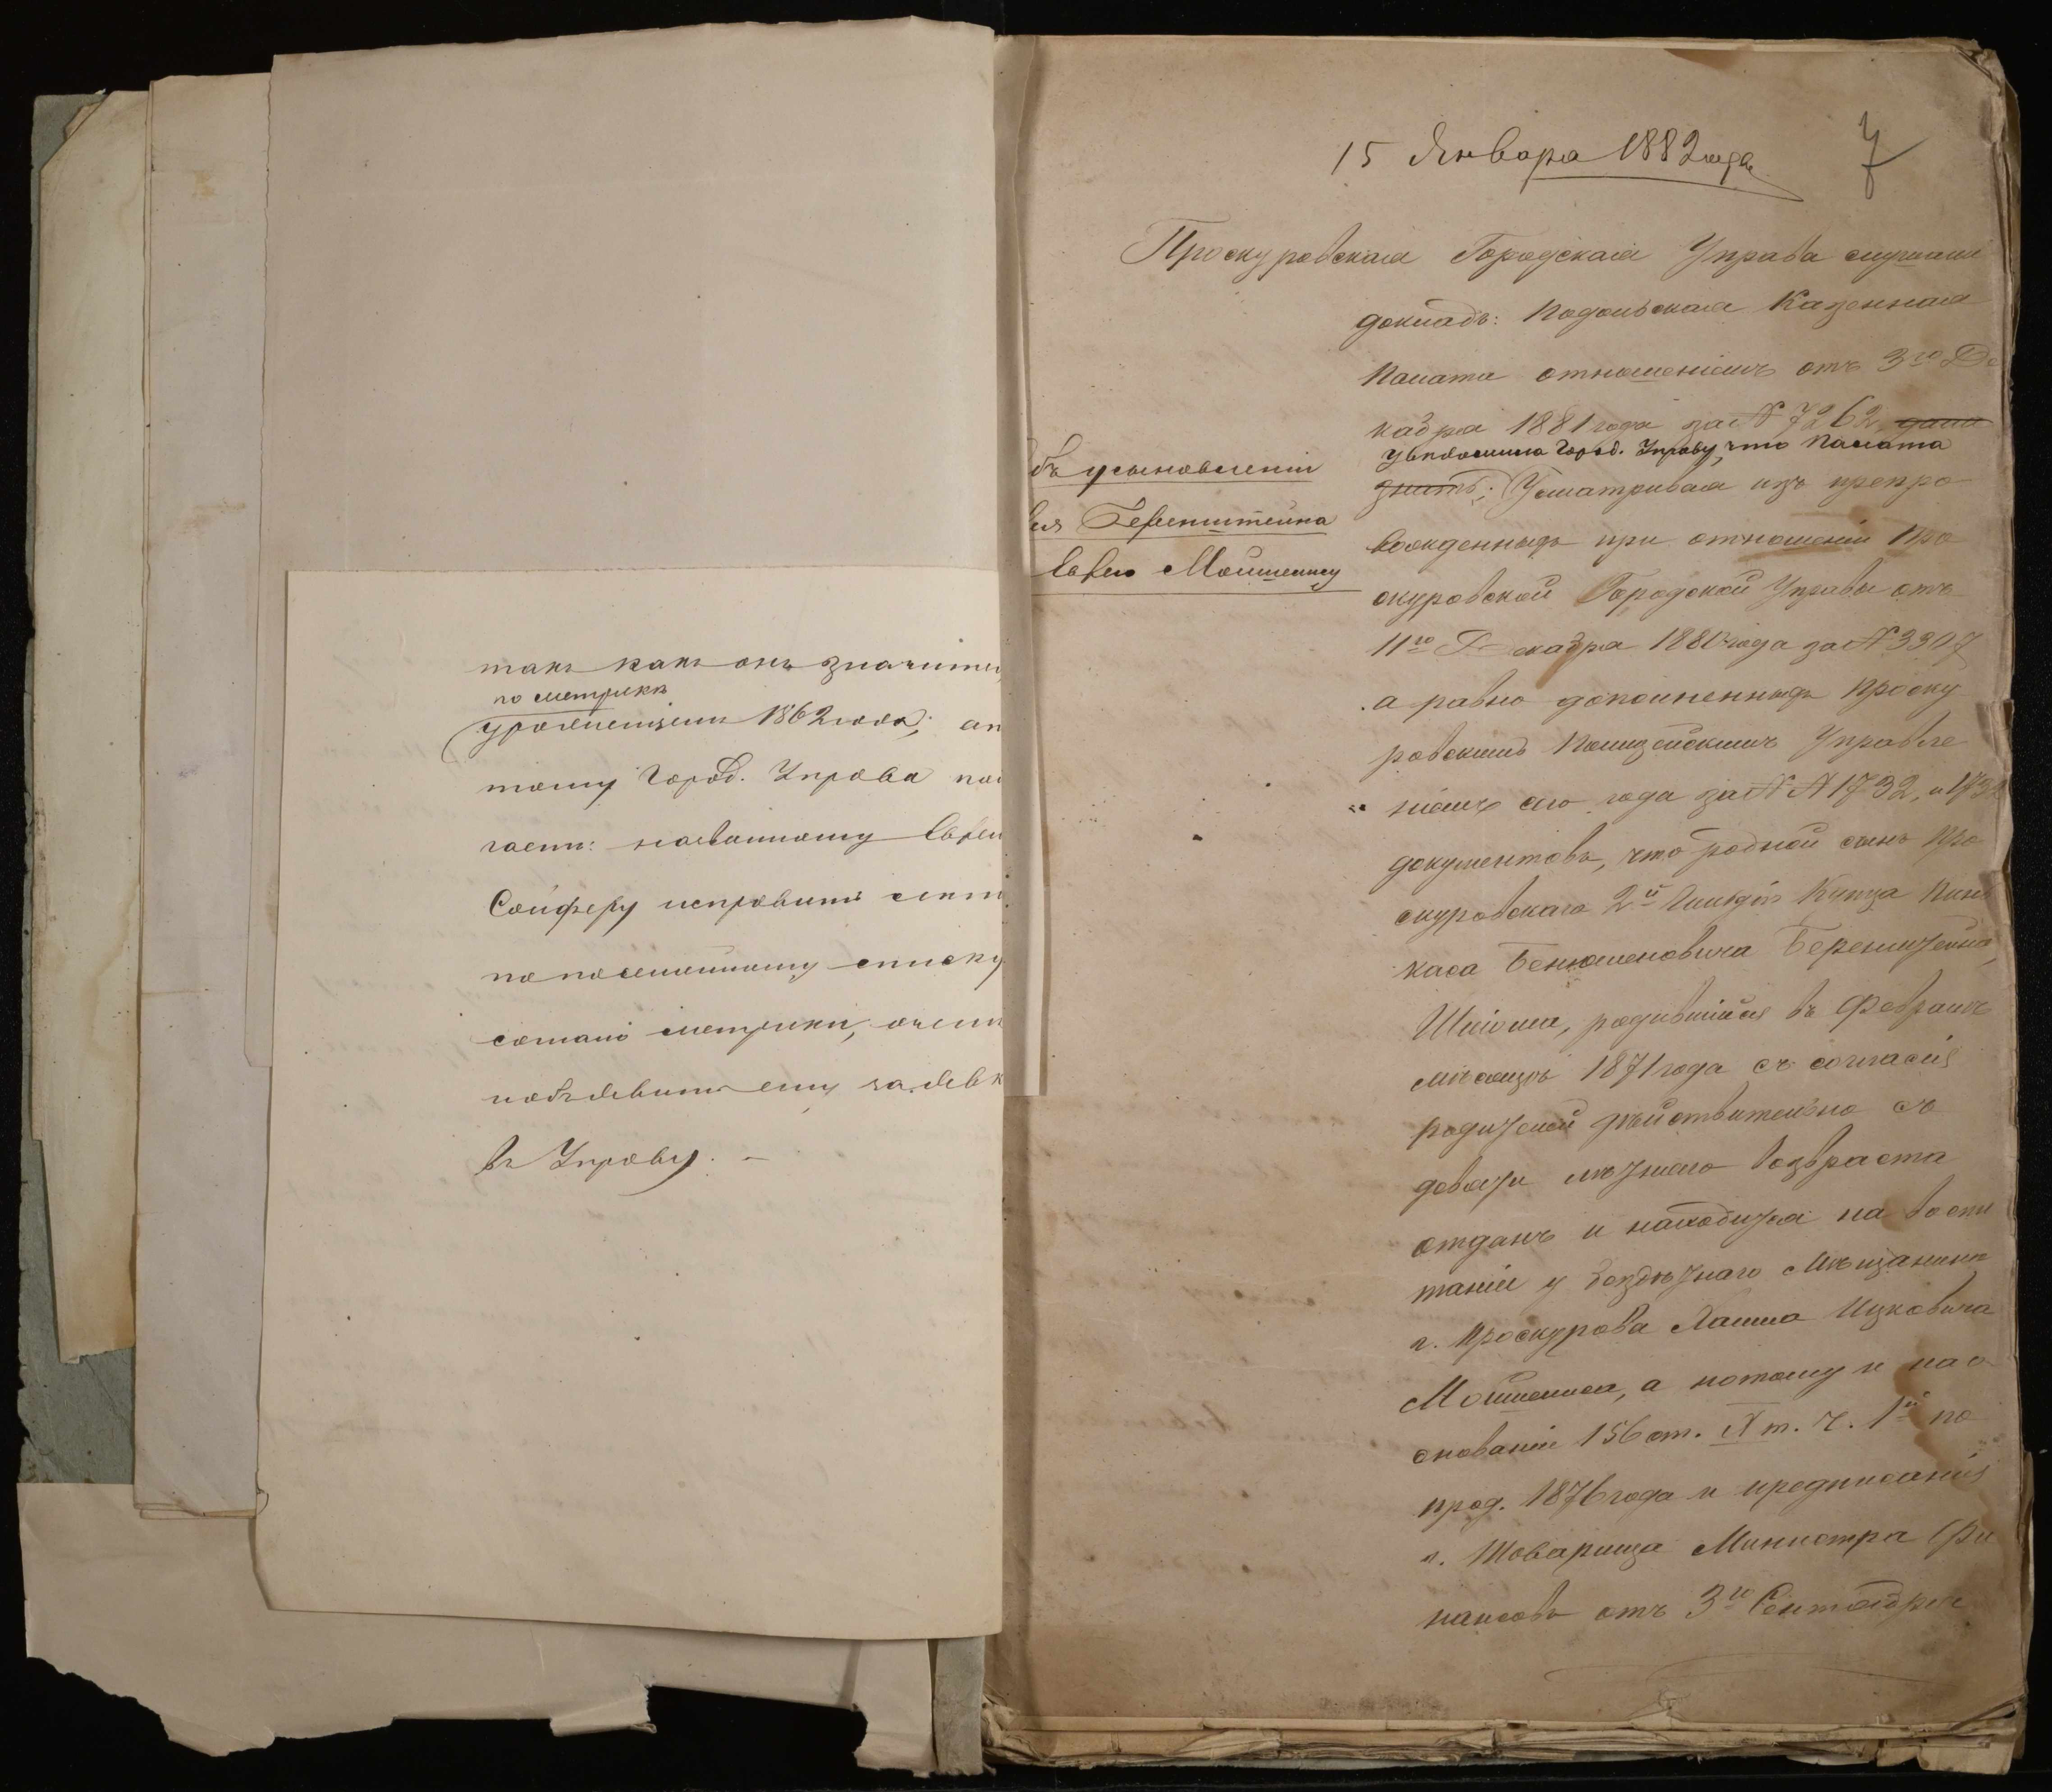 такъ какъ онъ значится
по метрикѣ
урожденцемъ 1862 года;
тому Город. Управа
гаетъ: названному Еврею
Сойферу исправить
по посемейному списку
согласно метрики, о чемъ
объявить ему
въ Управу. —
15 Января 1882 года
7
Проскуровская Городская Управа слушали
докладъ: Подольская Казенная
Палата отношеніемъ отъ 3го Де
кабря 1881 года за № 7262
увѣдомила Город. Управу, что Палата
Усматривая изъ препро
вожденныхъ при отношеніи Про
скуровской Городской Управы отъ
11го Декабря 1880 года за № 3307
а равно дополненныхъ Проску
ровскимъ Полицейскимъ Управле
ніемъ сего года за №№ 1732, и 1732
документовъ, что родной сынъ Про
скуровскаго 2й Гильдіи Купца Пин
каса Бенюменовича Беренштейна,
Шліома, родившійся въ Февралѣ
мѣсяцѣ 1871 года съ согласія
родителей дѣйствительно съ
девяти лѣтняго возраста
отданъ и находится на воспи
таніи у бездѣтнаго Мѣщанина
г. Проскурова Ицковича
Мойшениса, а потому и на о
снованіи 156 ст. IX т. ч. 1й по
прод. 1876 года и предписанія
г. Товарища Министра Фи
нансовъ отъ 3го Сентября
объ усыновленіи
Беренштейна
Еврею Мойшенису